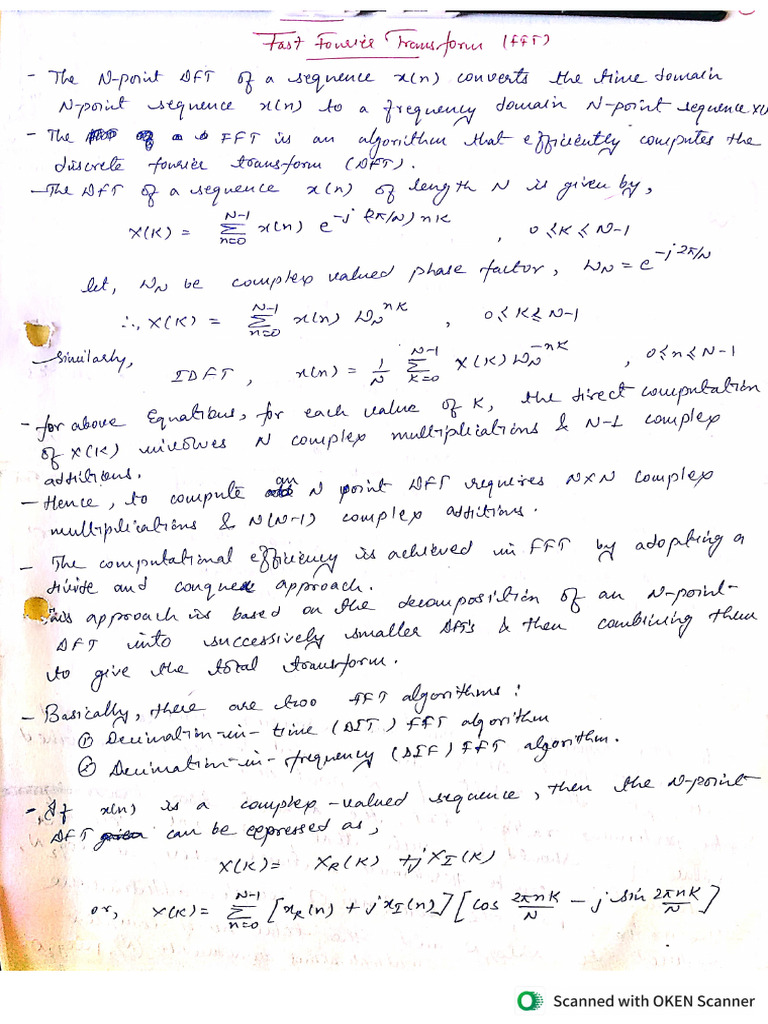 Fast Fourier Transform (FFT)
- The N-point DFT of a sequence x(n) converts the time domain
N-point sequence x(n) to a frequency domain N-point sequence X(
- The FFT is an algorithm that efficiently computes the
discrete fourier transform (DFT).
- The DFT of a sequence x(n) of length N is given by,
X(K) = Σ_{n=0}^{N-1} x(n) e^{-j(2π/N)nK} , 0≤K≤N-1
let, W_N be complex valued phase factor, W_N = e^{-j2π/N}
∴ X(K) = Σ_{n=0}^{N-1} x(n) W_N^{nK} , 0≤K≤N-1
Similarly,
IDFT, x(n) = 1/N Σ_{K=0}^{N-1} X(K) W_N^{-nK} , 0≤n≤N-1
- for above Equations, for each value of K, the direct computation
of X(K) involves N complex multiplications & N-1 complex
additions.
- Hence, to compute an N point DFT requires N×N complex
multiplications & N(N-1) complex additions.
- The computational efficiency is achieved in FFT by adopting a
divide and conquer approach.
approach is based on the decomposition of an N-point-
DFT into successively smaller DFTs & then combining them
to give the total transform.
- Basically, there are two FFT algorithms:
① Decimation-in-time (DIT) FFT algorithm
② Decimation-in-frequency (DIF) FFT algorithm.
- If x(n) is a complex-valued sequence, then the N-point
DFT can be expressed as,
X(K) = X_R(K) + jX_I(K)
or, X(K) = Σ_{n=0}^{N-1} [x_R(n) + jx_I(n)] [cos 2πnK/N - j sin 2πnK/N]
Scanned with OKEN Scanner